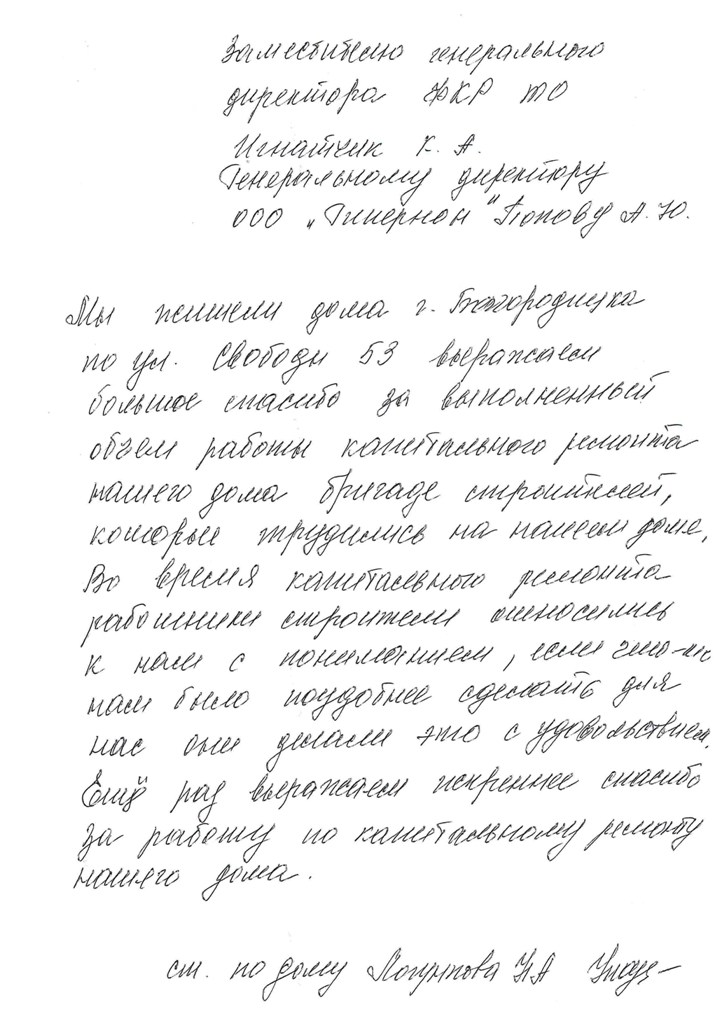 Заместителю генерального
директора ФКР ТО
Игнатчик К. А.
Генеральному директору
ООО „Гиперион" Попову А. Ю.
Мы жители дома г. Богородицка
по ул. Свободы 53 выражаем
большое спасибо за выполненный
объем работы капитального ремонта
нашего дома бригаде строителей,
которые трудились на нашем доме.
Во время капитального ремонта
работники строители относились
к нам с пониманием, если что-то
нам было поудобнее сделать для
нас они делали это с удовольствием.
Ещё раз выражаем искреннее спасибо
за работу по капитальному ремонту
нашего дома.
ст. по дому